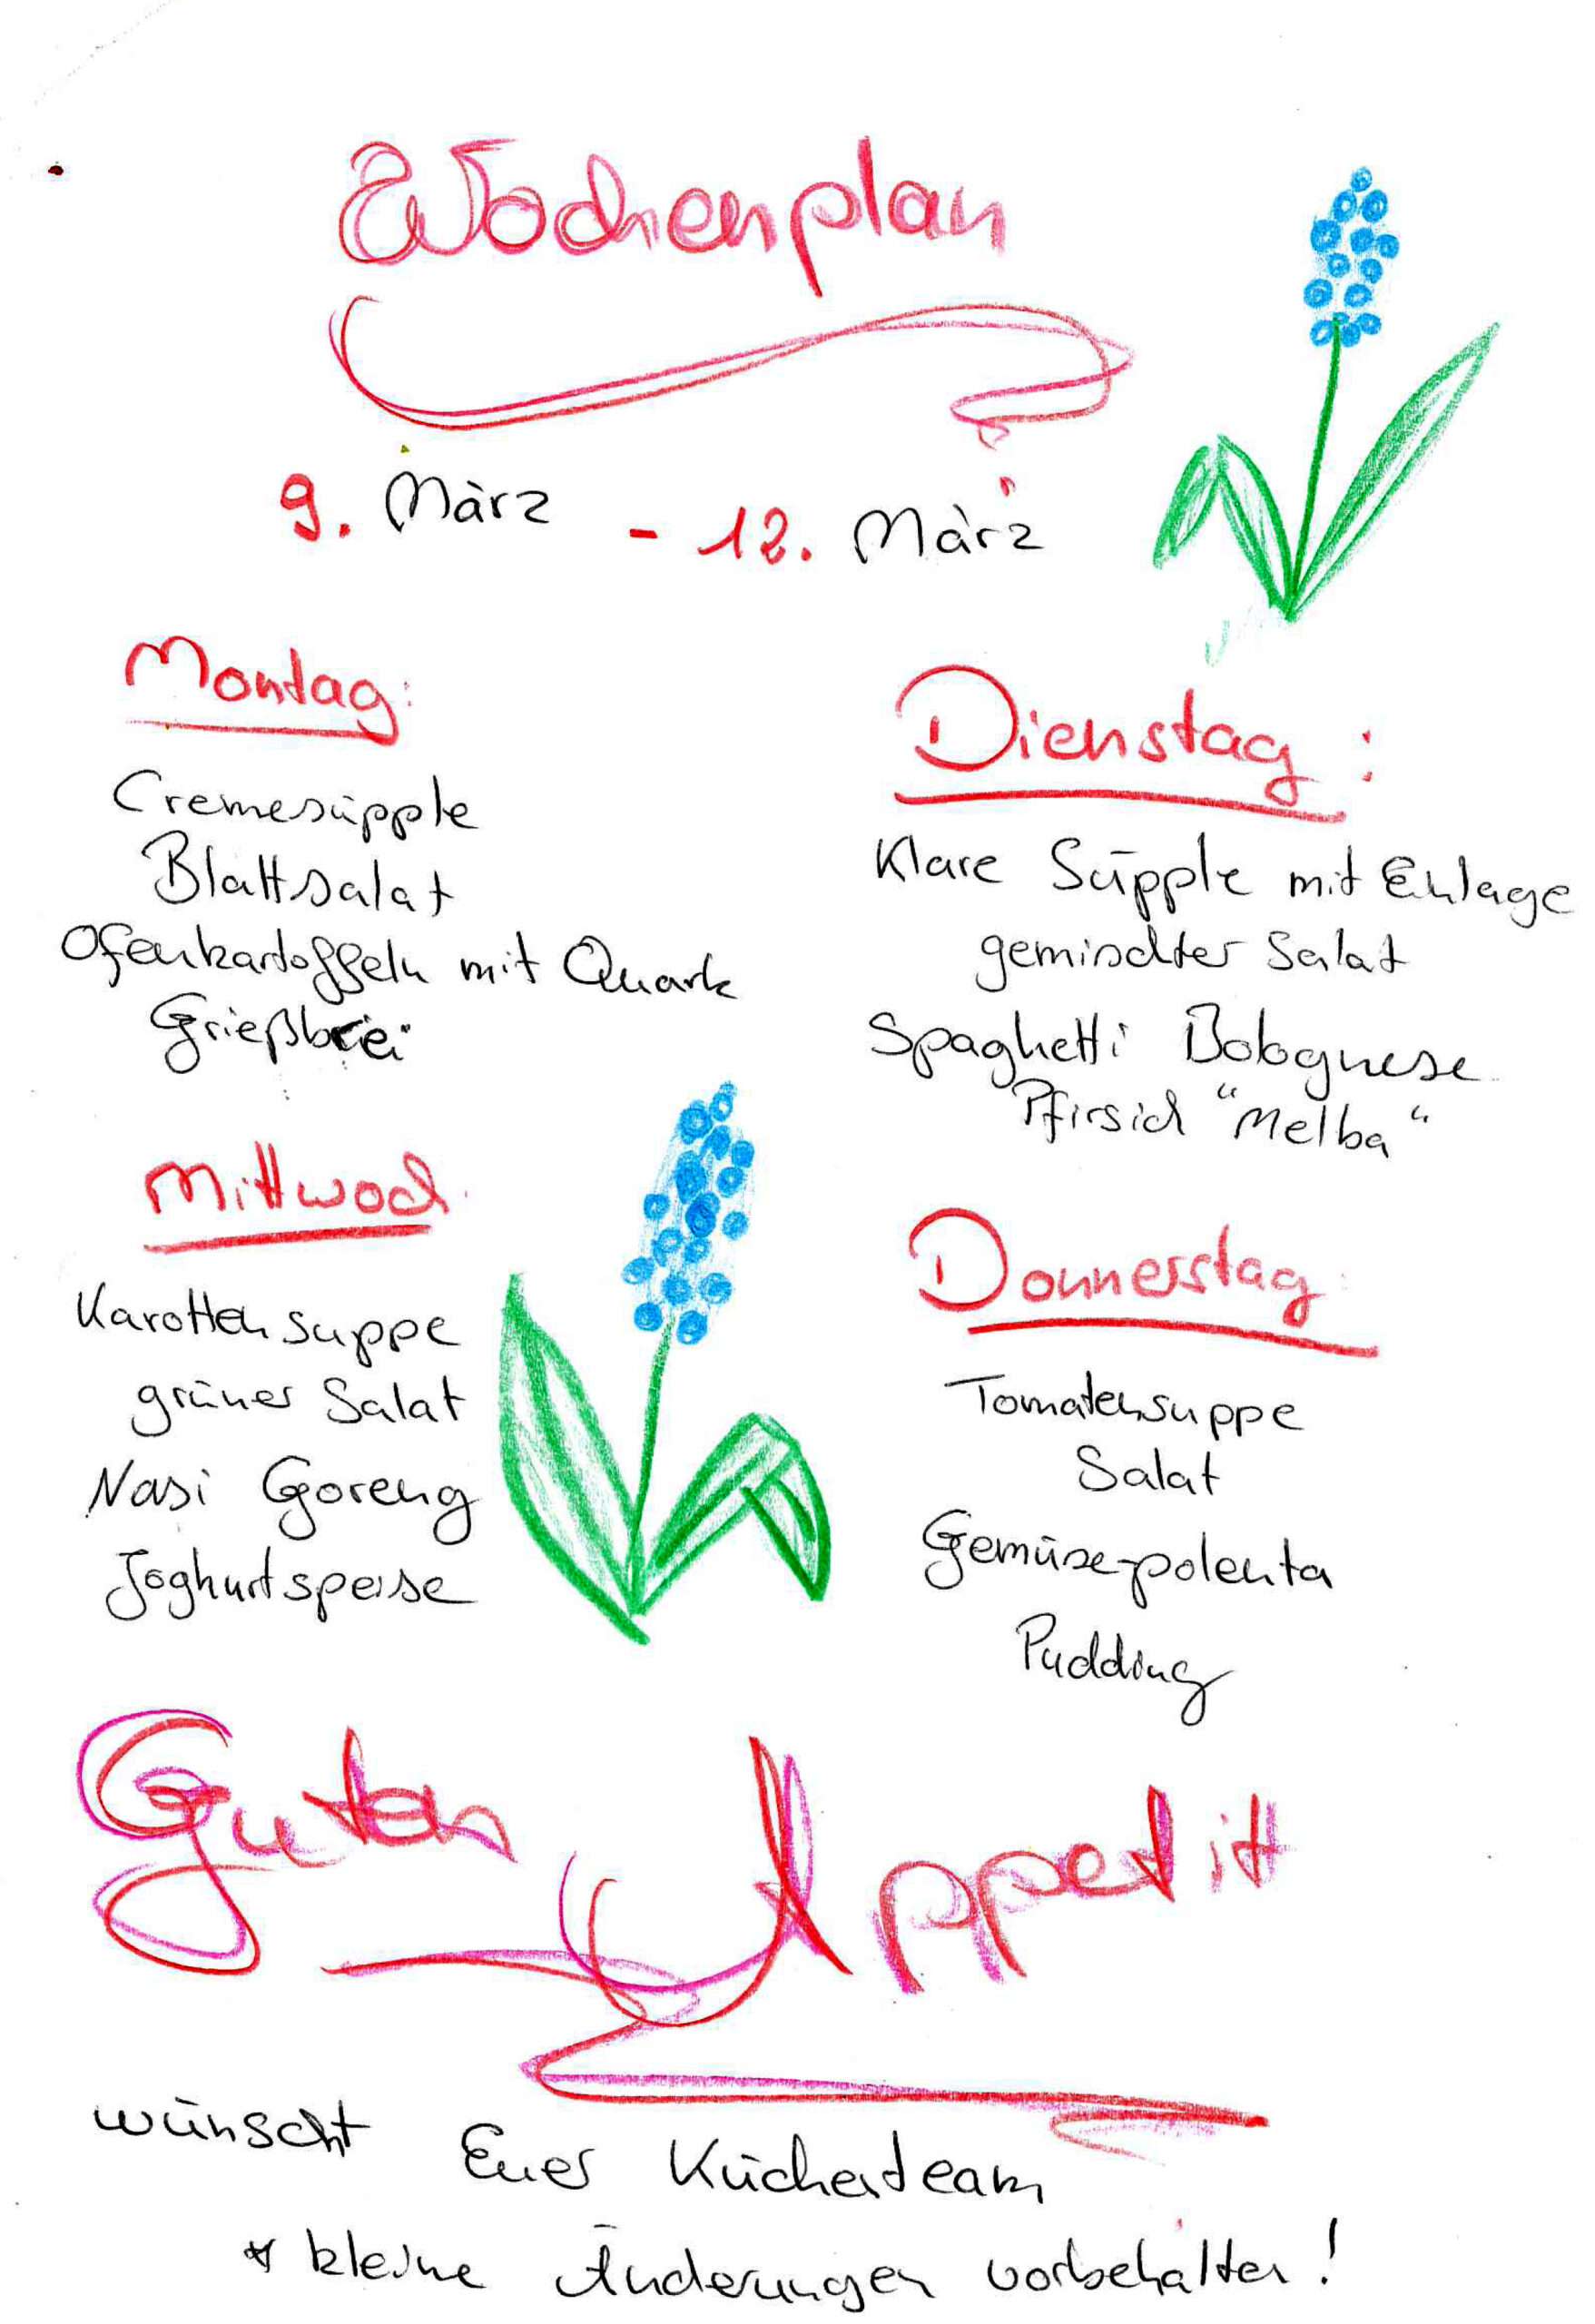 Wochenplan
9. März - 12. März
Montag:
Cremesüpple
Blattsalat
Ofenkartoffeln mit Quark
Grießbrei
Dienstag:
Klare Süpple mit Einlage
gemischter Salat
Spaghetti Bolognese
Pfirsich "Melba"
Mittwoch
Karottensuppe
grüner Salat
Nasi Goreng
Joghurtspeise
Donnerstag:
Tomatensuppe
Salat
Gemüse-polenta
Pudding
Guten Appetitt
wünscht Euer Küchenteam
* kleine Änderungen vorbehalten!